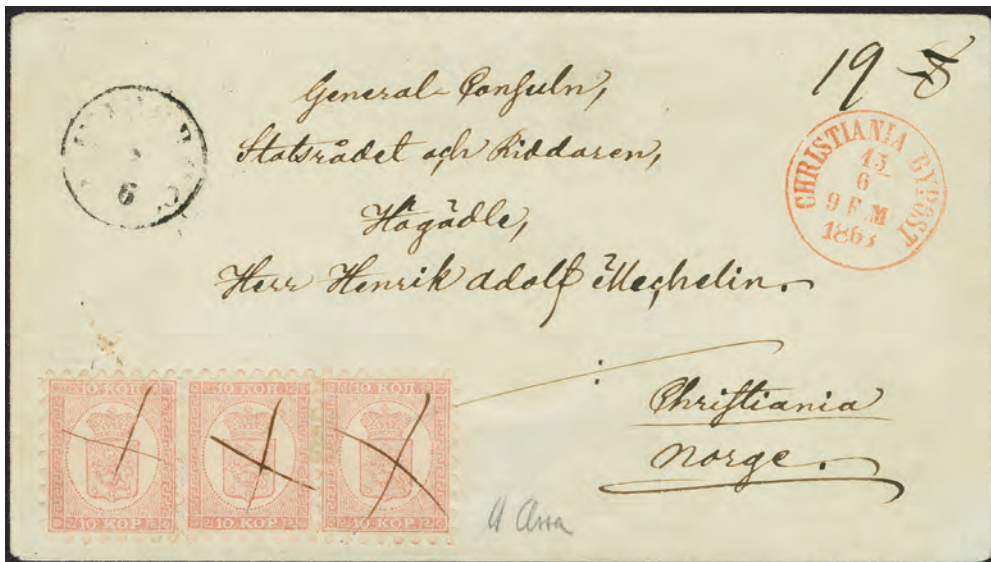 19
General-Consuln,
Statsrådet och Riddaren,
Högädle,
Herr Henrik Adolf Mechelin.
Christiania
Norge.
CHRISTIANIA BYPOST
13
6
9 F.M
1863
6
10 КОП. 10 КОП. 10 КОП.
10 KOP. 10 KOP. 10 KOP.